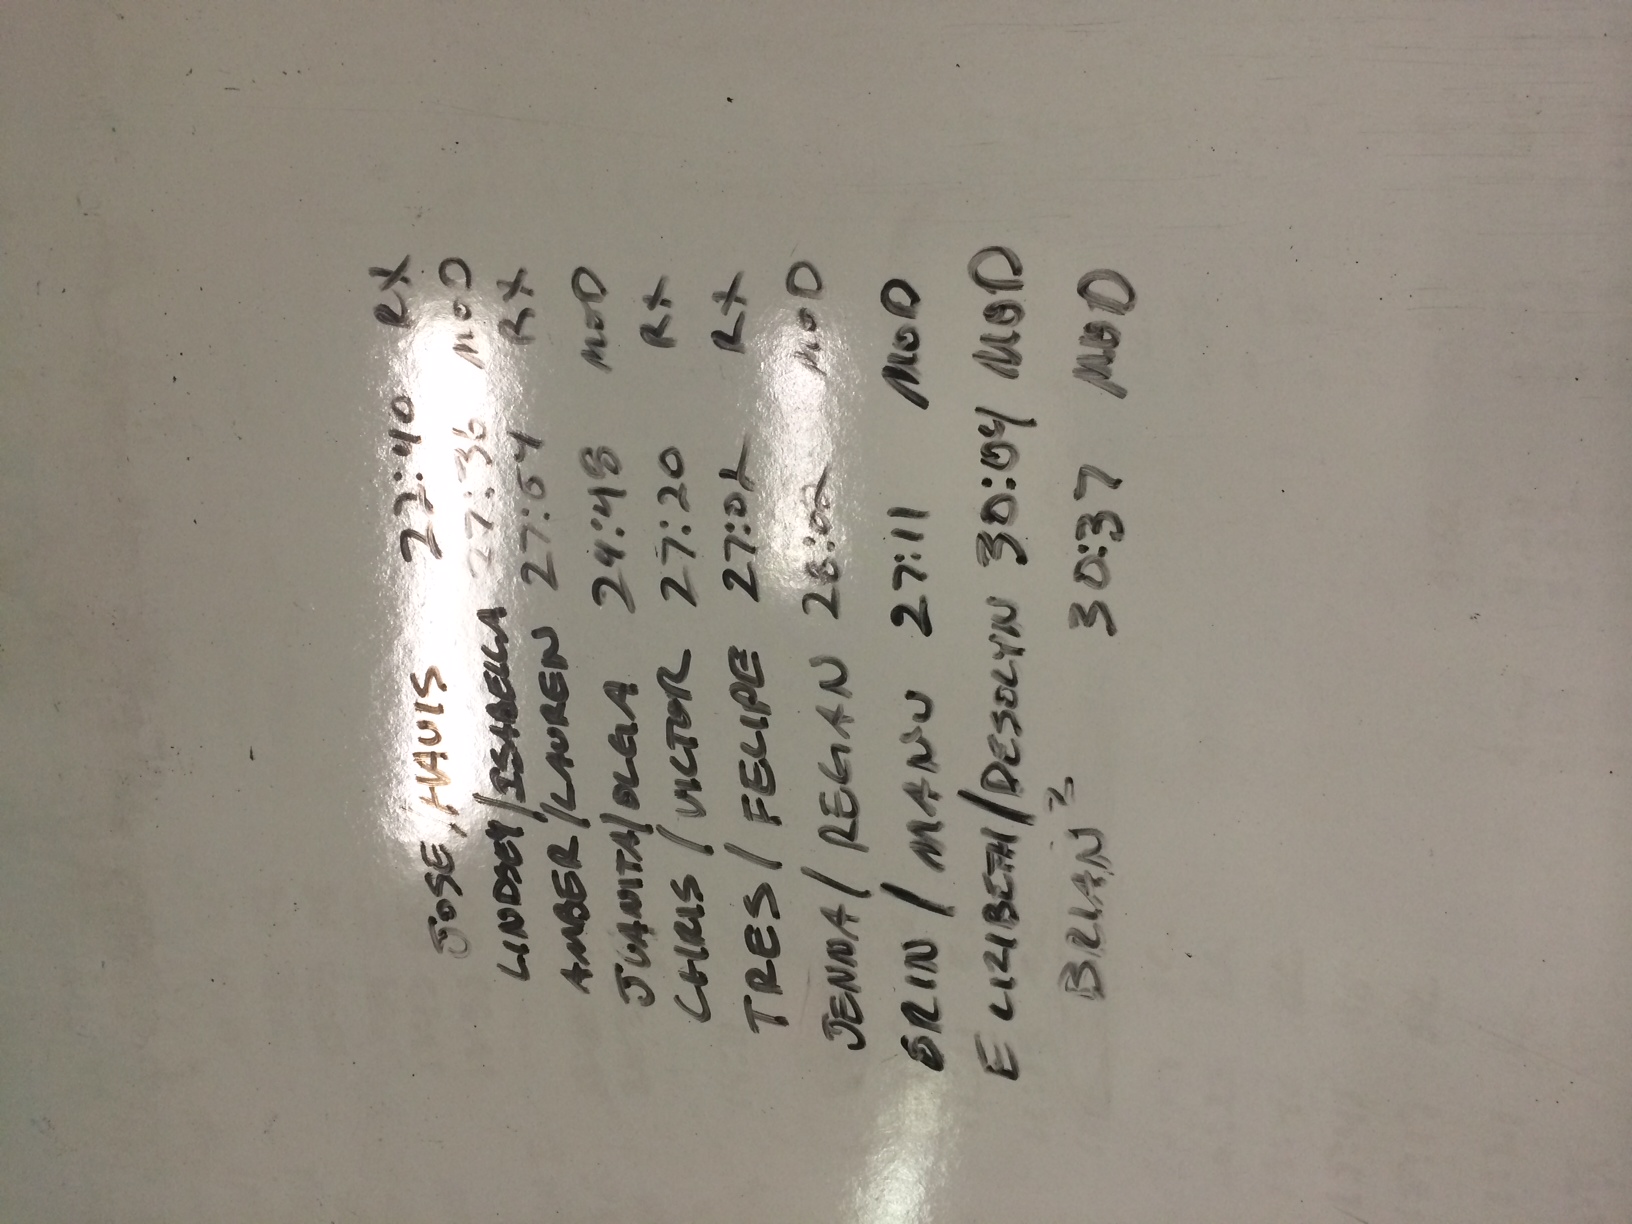 JOSE / 22:40 RX
LINDSEY/ISABELLA 27:36 MOD
AMBER/LAUREN 27:54 RX
JUANITA/OLGA 24:48 MOD
CHRIS/VICTOR 27:20 RX
TRES/FELIPE 27:02 RX
JENNA/REGAN 28:02 MOD
ERIN/MANU 27:11 MOD
ELIZIBETH/DESOLYN 30:04 MOD
BRIAN² 30:37 MOD